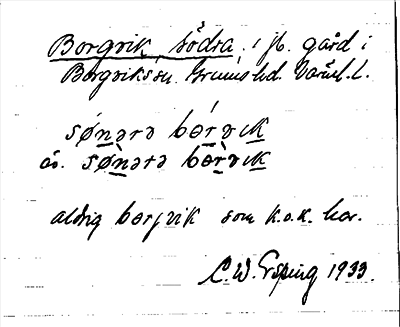 Borgvik, södra. i jb. gård i
Borgviks sn. Grums hd. Värml. l.
sǿnərə bǿrvιk
äv. sø̀nərə bø̀rvιk
aldrig borjvik som k.o.k. har.
C.W. Esping 1933.